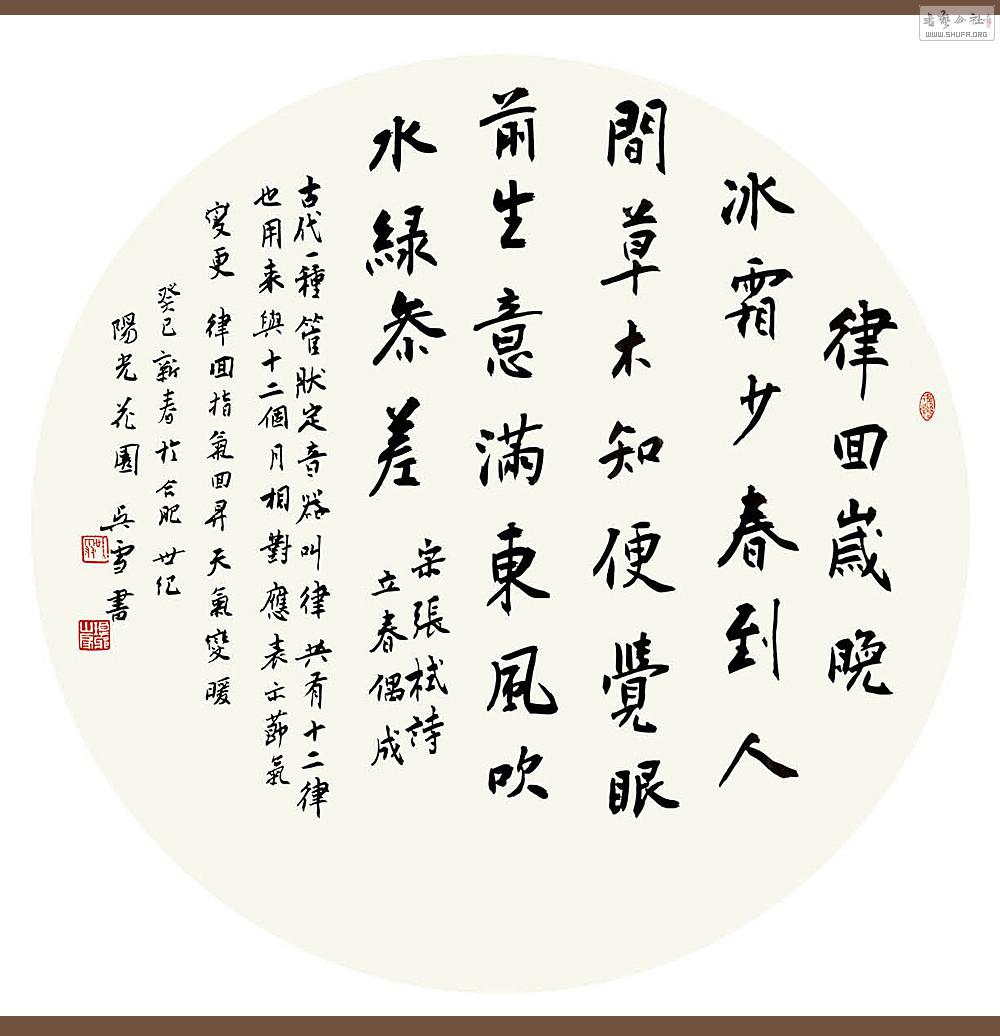 律回歲晚
冰霜少春到人
間草木知便覺眼
前生意滿東風吹
水綠叅差
宋張栻詩
立春偶成
古代一種管狀定音器叫律共有十二律
也用来與十二個月相對應表示節氣
變更律回指氣回昇天氣變暖
癸巳新春於合肥世纪
陽光花園吳雪書
WWW.SHUFA.ORG